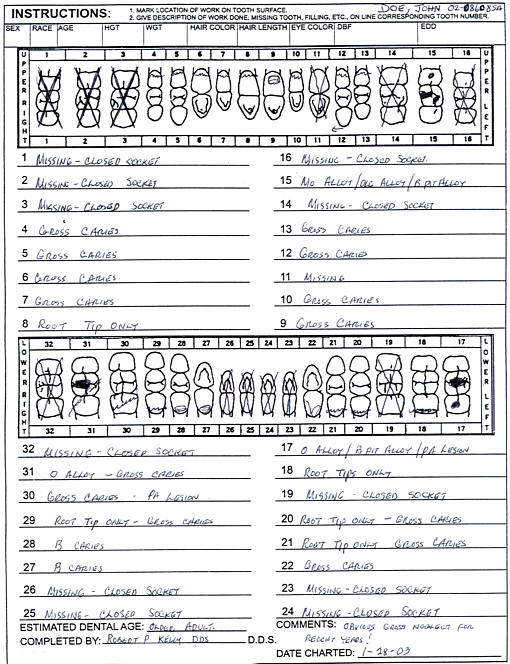 INSTRUCTIONS: 1. MARK LOCATION OF WORK ON TOOTH SURFACE. DOE, JOHN 02-
2. GIVE DESCRIPTION OF WORK DONE; MISSING TOOTH, FILLING, ETC., ON LINE CORRESPONDING TOOTH NUMBER.
SEX RACE AGE HGT WGT HAIR COLOR HAIR LENGTH EYE COLOR DBF EDD
UPPER RIGHT UPPER LEFT
1 2 3 4 5 6 7 8 9 10 11 12 13 14 15 16
1 2 3 4 5 6 7 8 9 10 11 12 13 14 15 16
1 MISSING - CLOSED SOCKET 16 MISSING - CLOSED SOCKET
2 MISSING - CLOSED SOCKET 15 MO ALLOY/ ALLOY/B PIT ALLOY
3 MISSING - CLOSED SOCKET 14 MISSING - CLOSED SOCKET
4 GROSS CARIES 13 GROSS CARIES
5 GROSS CARIES 12 GROSS CARIES
6 GROSS CARIES 11 MISSING
7 GROSS CARIES 10 GROSS CARIES
8 ROOT TIP ONLY 9 GROSS CARIES
LOWER RIGHT LOWER LEFT
32 31 30 29 28 27 26 25 24 23 22 21 20 19 18 17
32 31 30 29 28 27 26 25 24 23 22 21 20 19 18 17
32 MISSING - CLOSED SOCKET 17 O ALLOY/B PIT ALLOY/PA LESION
31 O ALLOY - GROSS CARIES 18 ROOT TIPS ONLY
30 GROSS CARIES - PA LESION 19 MISSING - CLOSED SOCKET
29 ROOT TIP ONLY - GROSS CARIES 20 ROOT TIP ONLY - GROSS CARIES
28 B CARIES 21 ROOT TIP ONLY GROSS CARIES
27 B CARIES 22 GROSS CARIES
26 MISSING - CLOSED SOCKET 23 MISSING - CLOSED SOCKET
25 MISSING - CLOSED SOCKET 24 MISSING - CLOSED SOCKET
ESTIMATED DENTAL AGE: OLDER ADULT. COMMENTS: OBVIOUS GROSS NEGLECT FOR
COMPLETED BY: ROBERT P KELLY DDS D.D.S. RECENT YEARS!
DATE CHARTED: 1-28-03